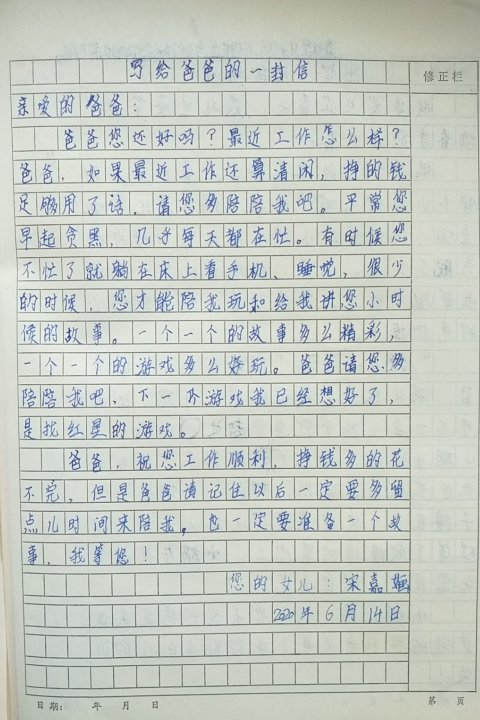 写给爸爸的一封信
修正栏
亲爱的爸爸：
爸爸您还好吗？最近工作怎么样？
爸爸，如果最近工作还算清闲，挣的钱
足够用了话，请您多陪陪我吧。平常您
早起贪黑，几乎每天都在忙。有时候您
不忙了就躺在床上看手机、睡觉，很少
的时候，您才能陪我玩和给我讲您小时
候的故事。一个一个的故事多么精彩，
一个一个的游戏多么好玩。爸爸请您多
陪陪我吧，下一个游戏我已经想好了，
是找红星的游戏。
爸爸，祝您工作顺利，挣钱多的花
不完，但是爸爸请记住以后一定要多留
点儿时间来陪我，也一定要准备一个故
事，我等您！
您的女儿：宋嘉
2020年6月14日
日期： 年 月 日
第 页